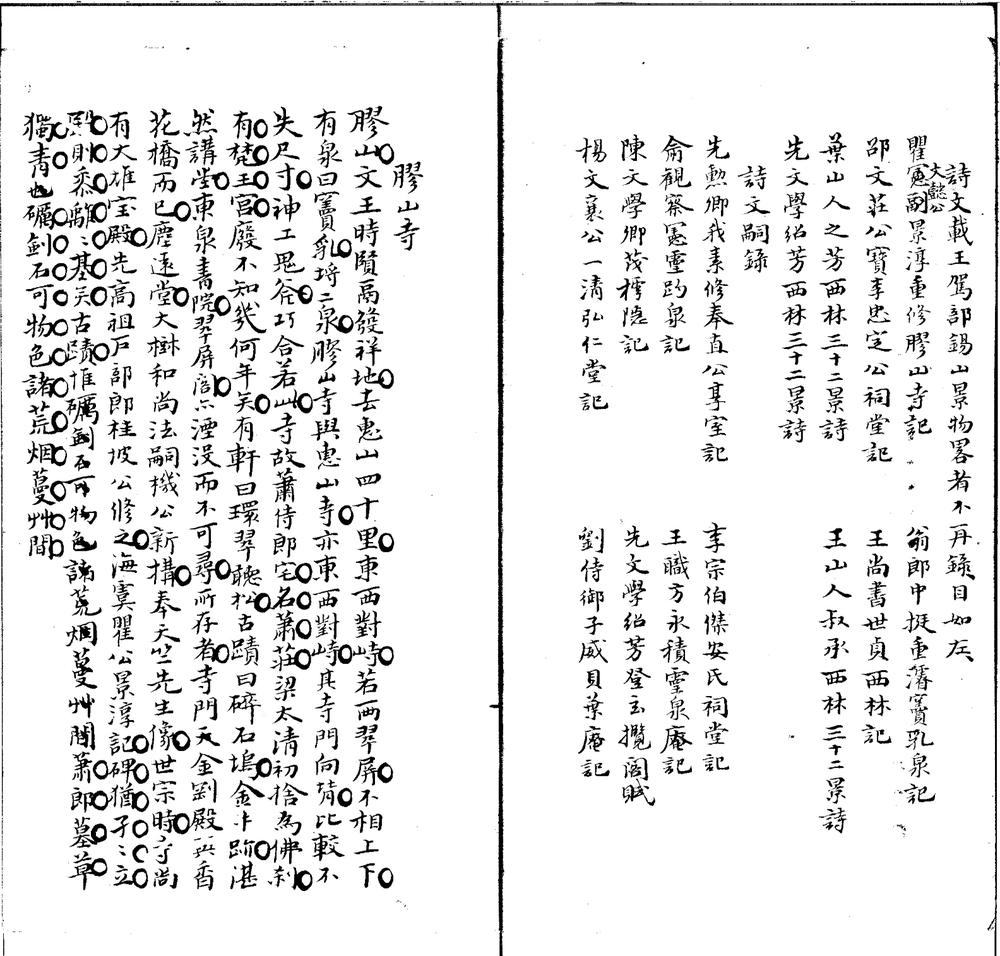 詩文載王駕部錫山景物畧者不再錄目如左
瞿憲副景淳重修膠山寺記
大懿公
翁郎中挺重濬竇乳泉記
邵文莊公寶李忠定公祠堂記
王尚書世貞西林記
葉山人之芳西林三十二景詩
王山人叔承西林三十二景詩
先文學紹芳西林三十二景詩
詩文嗣錄
先勲卿我素修奉直公享室記
李宗伯傑安氏祠堂記
俞觀察憲靈趵泉記
王職方永積靈泉庵記
陳文學卿茂樗隱記
先文學紹芳登玄攬閣賦
楊文襄公一清弘仁堂記
劉侍御子威貝葉庵記
膠山寺
膠山文王時賢鬲發祥地去惠山四十里東西對峙若两翠屏不相上下
有泉曰竇乳埒二泉膠山寺與惠山寺亦東西對峙其寺門向背比較不
失尺寸神工鬼斧巧合若此寺故蕭侍郎宅名蕭莊梁太清初捨為佛刹
有梵王宮廢不知幾何年矣有軒曰環翠聽松古蹟曰碎石塢金牛跡湛
然講堂東泉書院翠屏閣亦湮没而不可尋所存者寺門天金剛殿與香
花橋而已塵遠堂大樹和尚法嗣機公新搆奉天竺先生像世宗時寺尚
有大雄宝殿先高祖戸部郎桂坡公修之海虞瞿公景淳記碑猶孑孑立
殿則黍離離基矣古蹟惟礪劍石可物色諸荒烟蔓艸間蕭郎墓草
獨青也礪劍石可物色諸荒烟蔓艸間